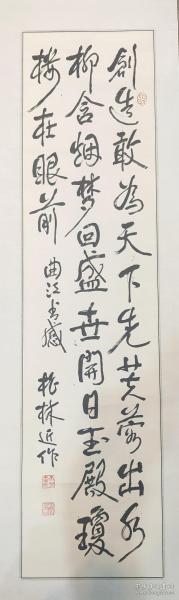 創造敢為天下先芙蓉出水
柳含烟梦回盛世開日玉殿瓊
楼在眼前 曲江书感 振林近作